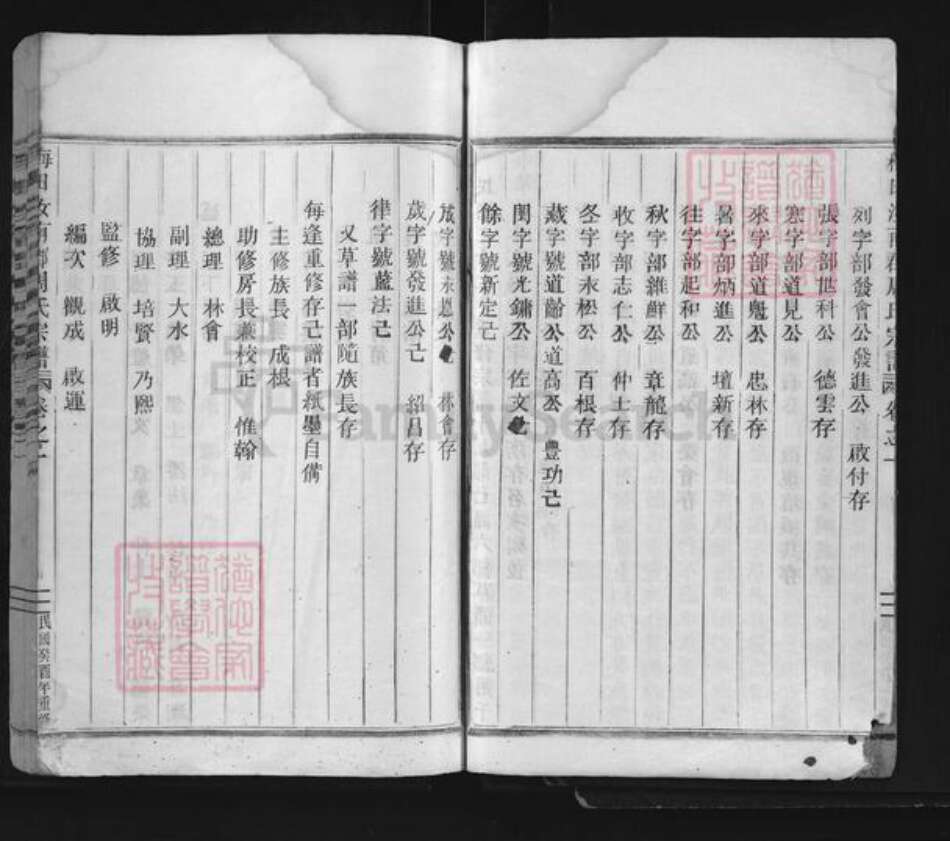 列字部發會公發進公 啟付存
張字部世科公 德雲存
寒字部道見公
來字部道魁公 忠林存
暑字部炳進公 壇新存
往字部起和公
秋字部維鮮公 章龍存
收字部志仁公 仲士存
冬字部永松公 百根存
藏字號道齡公道高公 豊功己
閏字號光鏞公 佐文
餘字號新定己
字號永恩公 林會存
歲字號發進公己 紹昌存
律字號藍法己
又草譜一部隨族長存
每逢重修存己譜者紙墨自備
主修族長 成根
助修房長兼校正 惟翰
總理 林會
副理 大水
協理 培賢乃熙
監修 啟明
編次 觀成 啟運
周氏宗譜 卷之一
民國癸酉年重修
FamilySearch